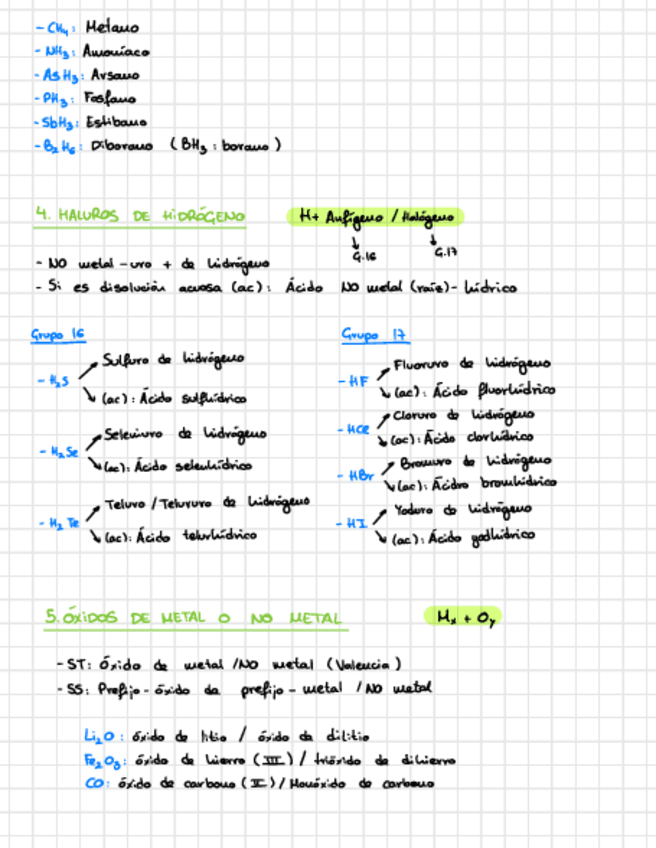 - CH₄: Metano
- NH₃: Amoníaco
- AsH₃: Arsano
- PH₃: Fosfano
- SbH₃: Estibano
- B₂H₆: Diborano (BH₃: borano)
4. HALUROS DE HIDRÓGENO H + Anfígeno / Halógeno
↓ G.16 ↓ G.17
- NO metal -uro + de hidrógeno
- Si es disolución acuosa (ac): Ácido NO metal (raíz) - hídrico
Grupo 16
- H₂S
Sulfuro de hidrógeno
(ac): Ácido sulfhídrico
- H₂Se
Seleniuro de hidrógeno
(ac): Ácido selenhídrico
- H₂Te
Teluro / Telururo de hidrógeno
(ac): Ácido telurhídrico
Grupo 17
- HF
Fluoruro de hidrógeno
(ac): Ácido fluorhídrico
- HCl
Cloruro de hidrógeno
(ac): Ácido clorhídrico
- HBr
Bromuro de hidrógeno
(ac): Ácido bromhídrico
- HI
Yoduro de hidrógeno
(ac): Ácido yodhídrico
5. ÓXIDOS DE METAL O NO METAL Mₓ + Oᵧ
- ST: óxido de metal / NO metal (Valencia)
- SS: Prefijo - óxido de prefijo - metal / NO metal
Li₂O: óxido de litio / óxido de dilitio
Fe₂O₃: óxido de hierro (III) / trióxido de dihierro
CO: óxido de carbono (II) / Monóxido de carbono